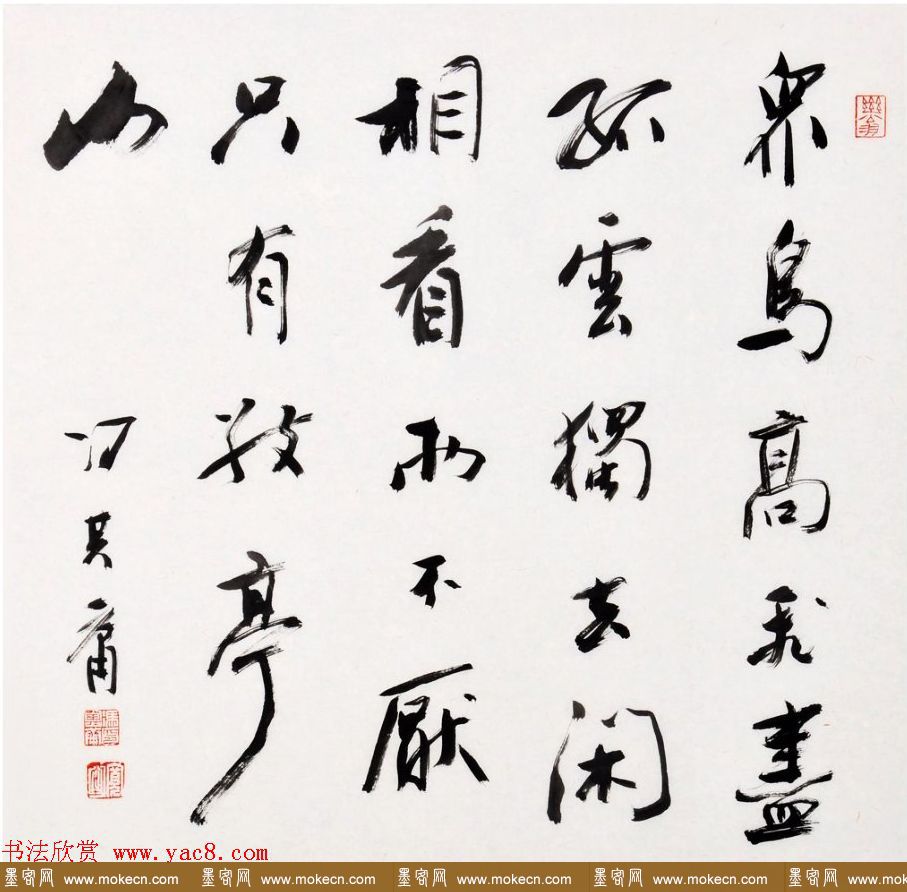 眾鳥高飛盡
孤雲獨去閑
相看兩不厭
只有敬亭
山
馮其庸
书法欣赏 www.yac8.com
墨客网 www.mokecn.com 墨客网 www.mokecn.com 墨客网 www.mokecn.com 墨客网 www.mokecn.com 墨客网